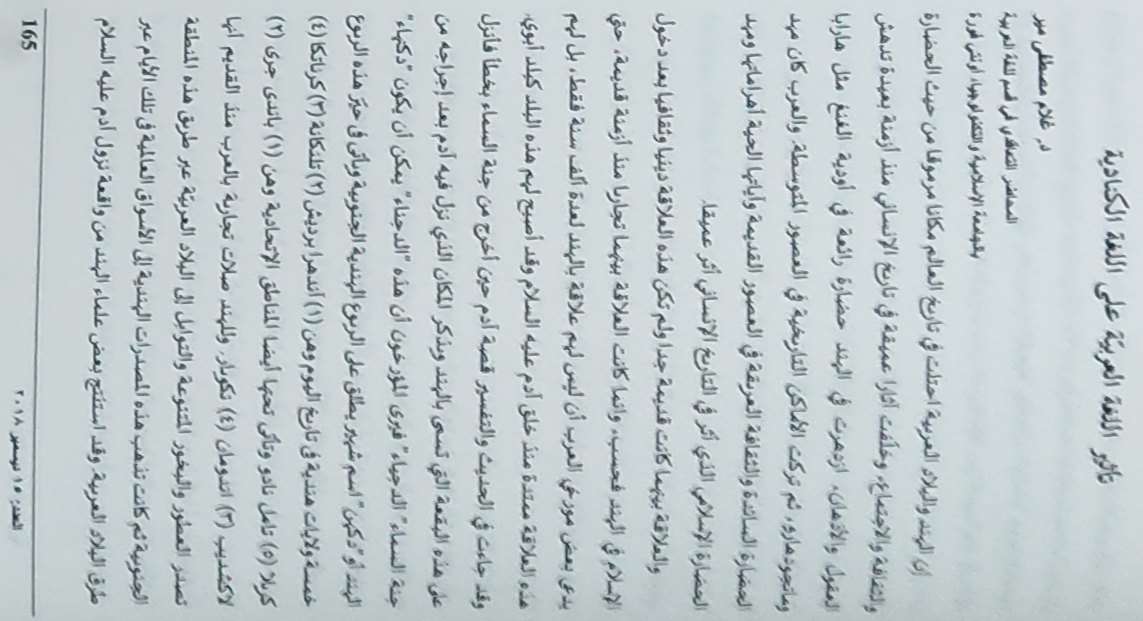 تأثير اللغة العربيّة على اللغة الكنادية
د. غلام مصطفى مير
المحاضر التعاقدي في قسم اللغة العربية
بالجامعة الإسلامية والتكنولوجيا، أونتي فورة
إن الهند والبلاد العربية احتلت في تاريخ العالم مكانا مرموقا من حيث الحضارة
والثقافة والاجتماع، وخلّفت آثارا عميقة في تاريخ الإنساني منذ أزمنة بعيدة تدهش
العقول والأذهان. ازدهرت في الهند حضارة رائعة في أودية الغنغ مثل هارابا
وماتجودهارو، ثم تركت الأماكن التاريخية في العصور المتوسطة. والعرب كان مهد
الحضارة السائدة والثقافة العريقة في العصور القديمة وآياتها الحية أهراماتها ومهد
الحضارة الإسلامي الذي أثر في التاريخ الإنساني أثر عميقا.
والعلاقة بينهما كانت قديمة جدا ولم تكن هذه العلاقة دينيا وثقافيا بعد دخول
الإسلام في الهند فحسب، وانما كانت العلاقة بينهما تجاريا منذ أزمنة قديمة، حتى
يدعى بعض مورخي العرب أن ليس لهم علاقة بالهند لعدة ألف سنة فقط، بل لهم
هذه العلاقة ممتدة منذ خلق آدم عليه السلام وقد أصبح لهم هذه البلد كبلد أبوي.
وقد جاءت في الحديث والتفسير قصة آدم حين أخرج من جنة السماء بخطأ فأنزل
على هذه البقعة التي تسمى بالهند ويذكر المكان الذي نزل فيه آدم بعد إخراجه من
جنة السماء "الدجناء" فيرى المؤرخون أن هذه "الدجناء" يمكن أن يكون "دكهناء"
الهند أو "دكهن" اسم شهير يطلق على الربوع الهندية الجنوبية ويأتى في حيّز هذه الربوع
خمسة ولايات هندية في تاريخ اليوم وهن (١) أندهرا برديش (٢) تلنكانة (٣) كرناتكا (٤)
كرلا (٥) تامل نادو وتأتى تحتها أيضا المناطق الإتحادية وهن (١) باندى جرى (٢)
لاكشديب (٣) اندومان (٤) نكوبار. وللهند صلات تجارية بالعرب منذ القديم أنها
تصدر العطور والبخور المتنوعة والتوابل إلى البلاد العربيّة عبر طريق هذه المنطقة
الجنوبية ثم كانت تذهب هذه المصدرات الهندية إلى الأسواق العالمية في تلك الأيام عبر
طرق البلاد العربية. وقد استنتج بعض علماء الهند من واقعة نزول آدم عليه السلام
165
العدد: ١٥ ديسمبر ٢٠١٨